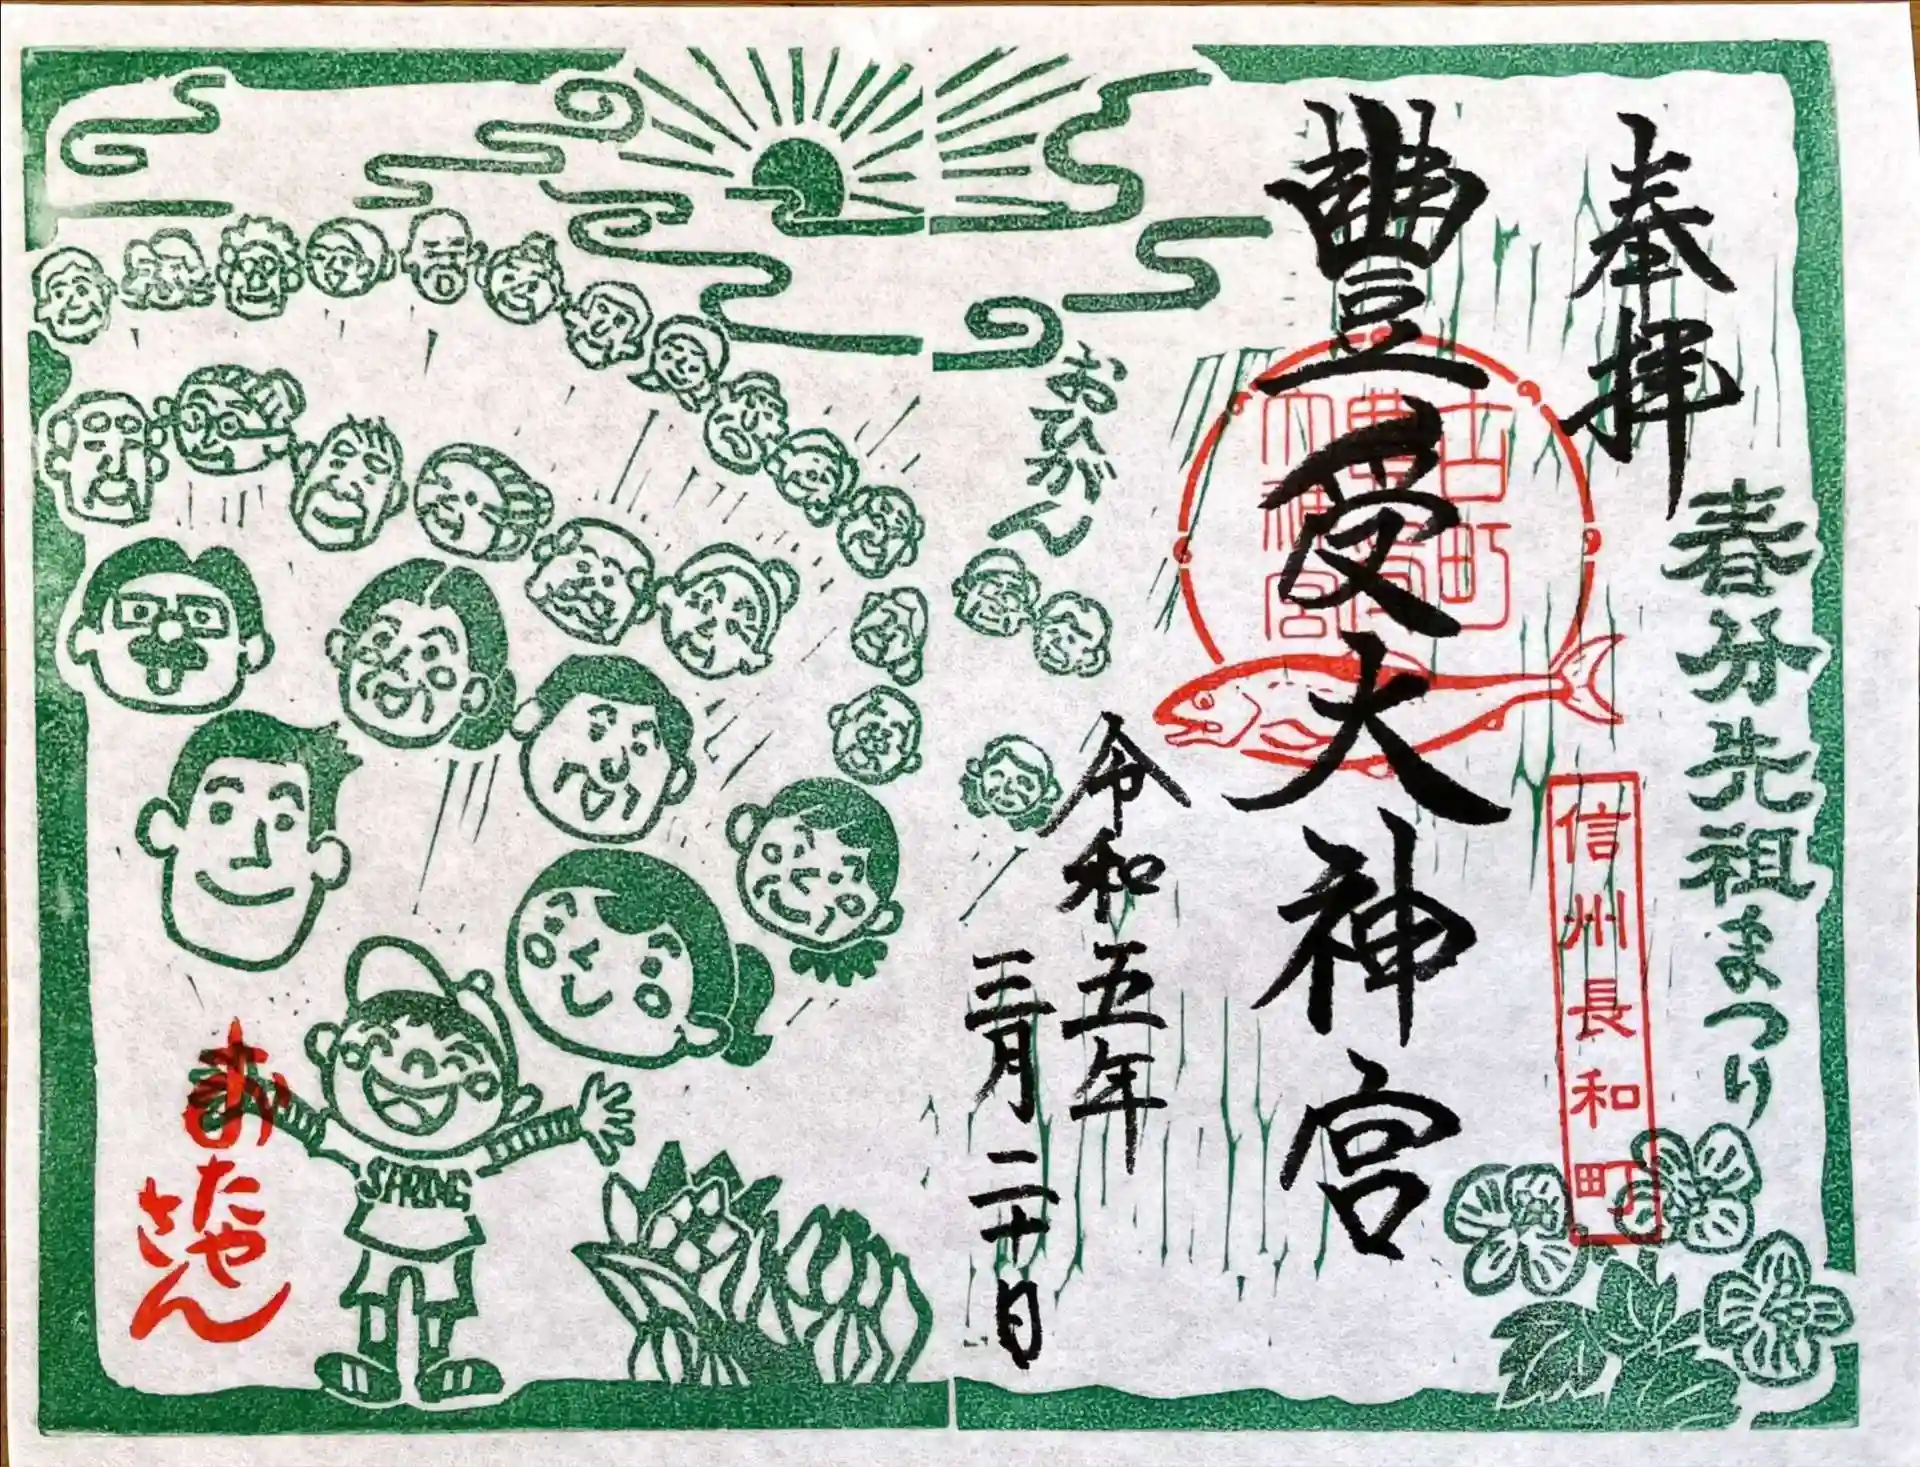 奉拝
春分先祖まつり
豊受大神宮
古町
豊受
大神宮
信州長和町
おひがん
令和五年
三月二十日
おたやさん
SPRING